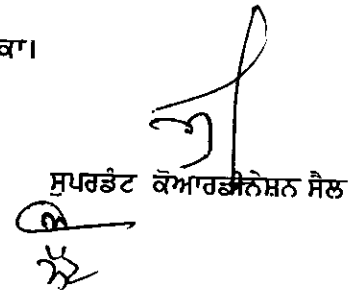 ਕਾ।
ਸੁਪਰਡੰਟ ਕੋਆਰਡੀਨੇਸ਼ਨ ਸੈਲ